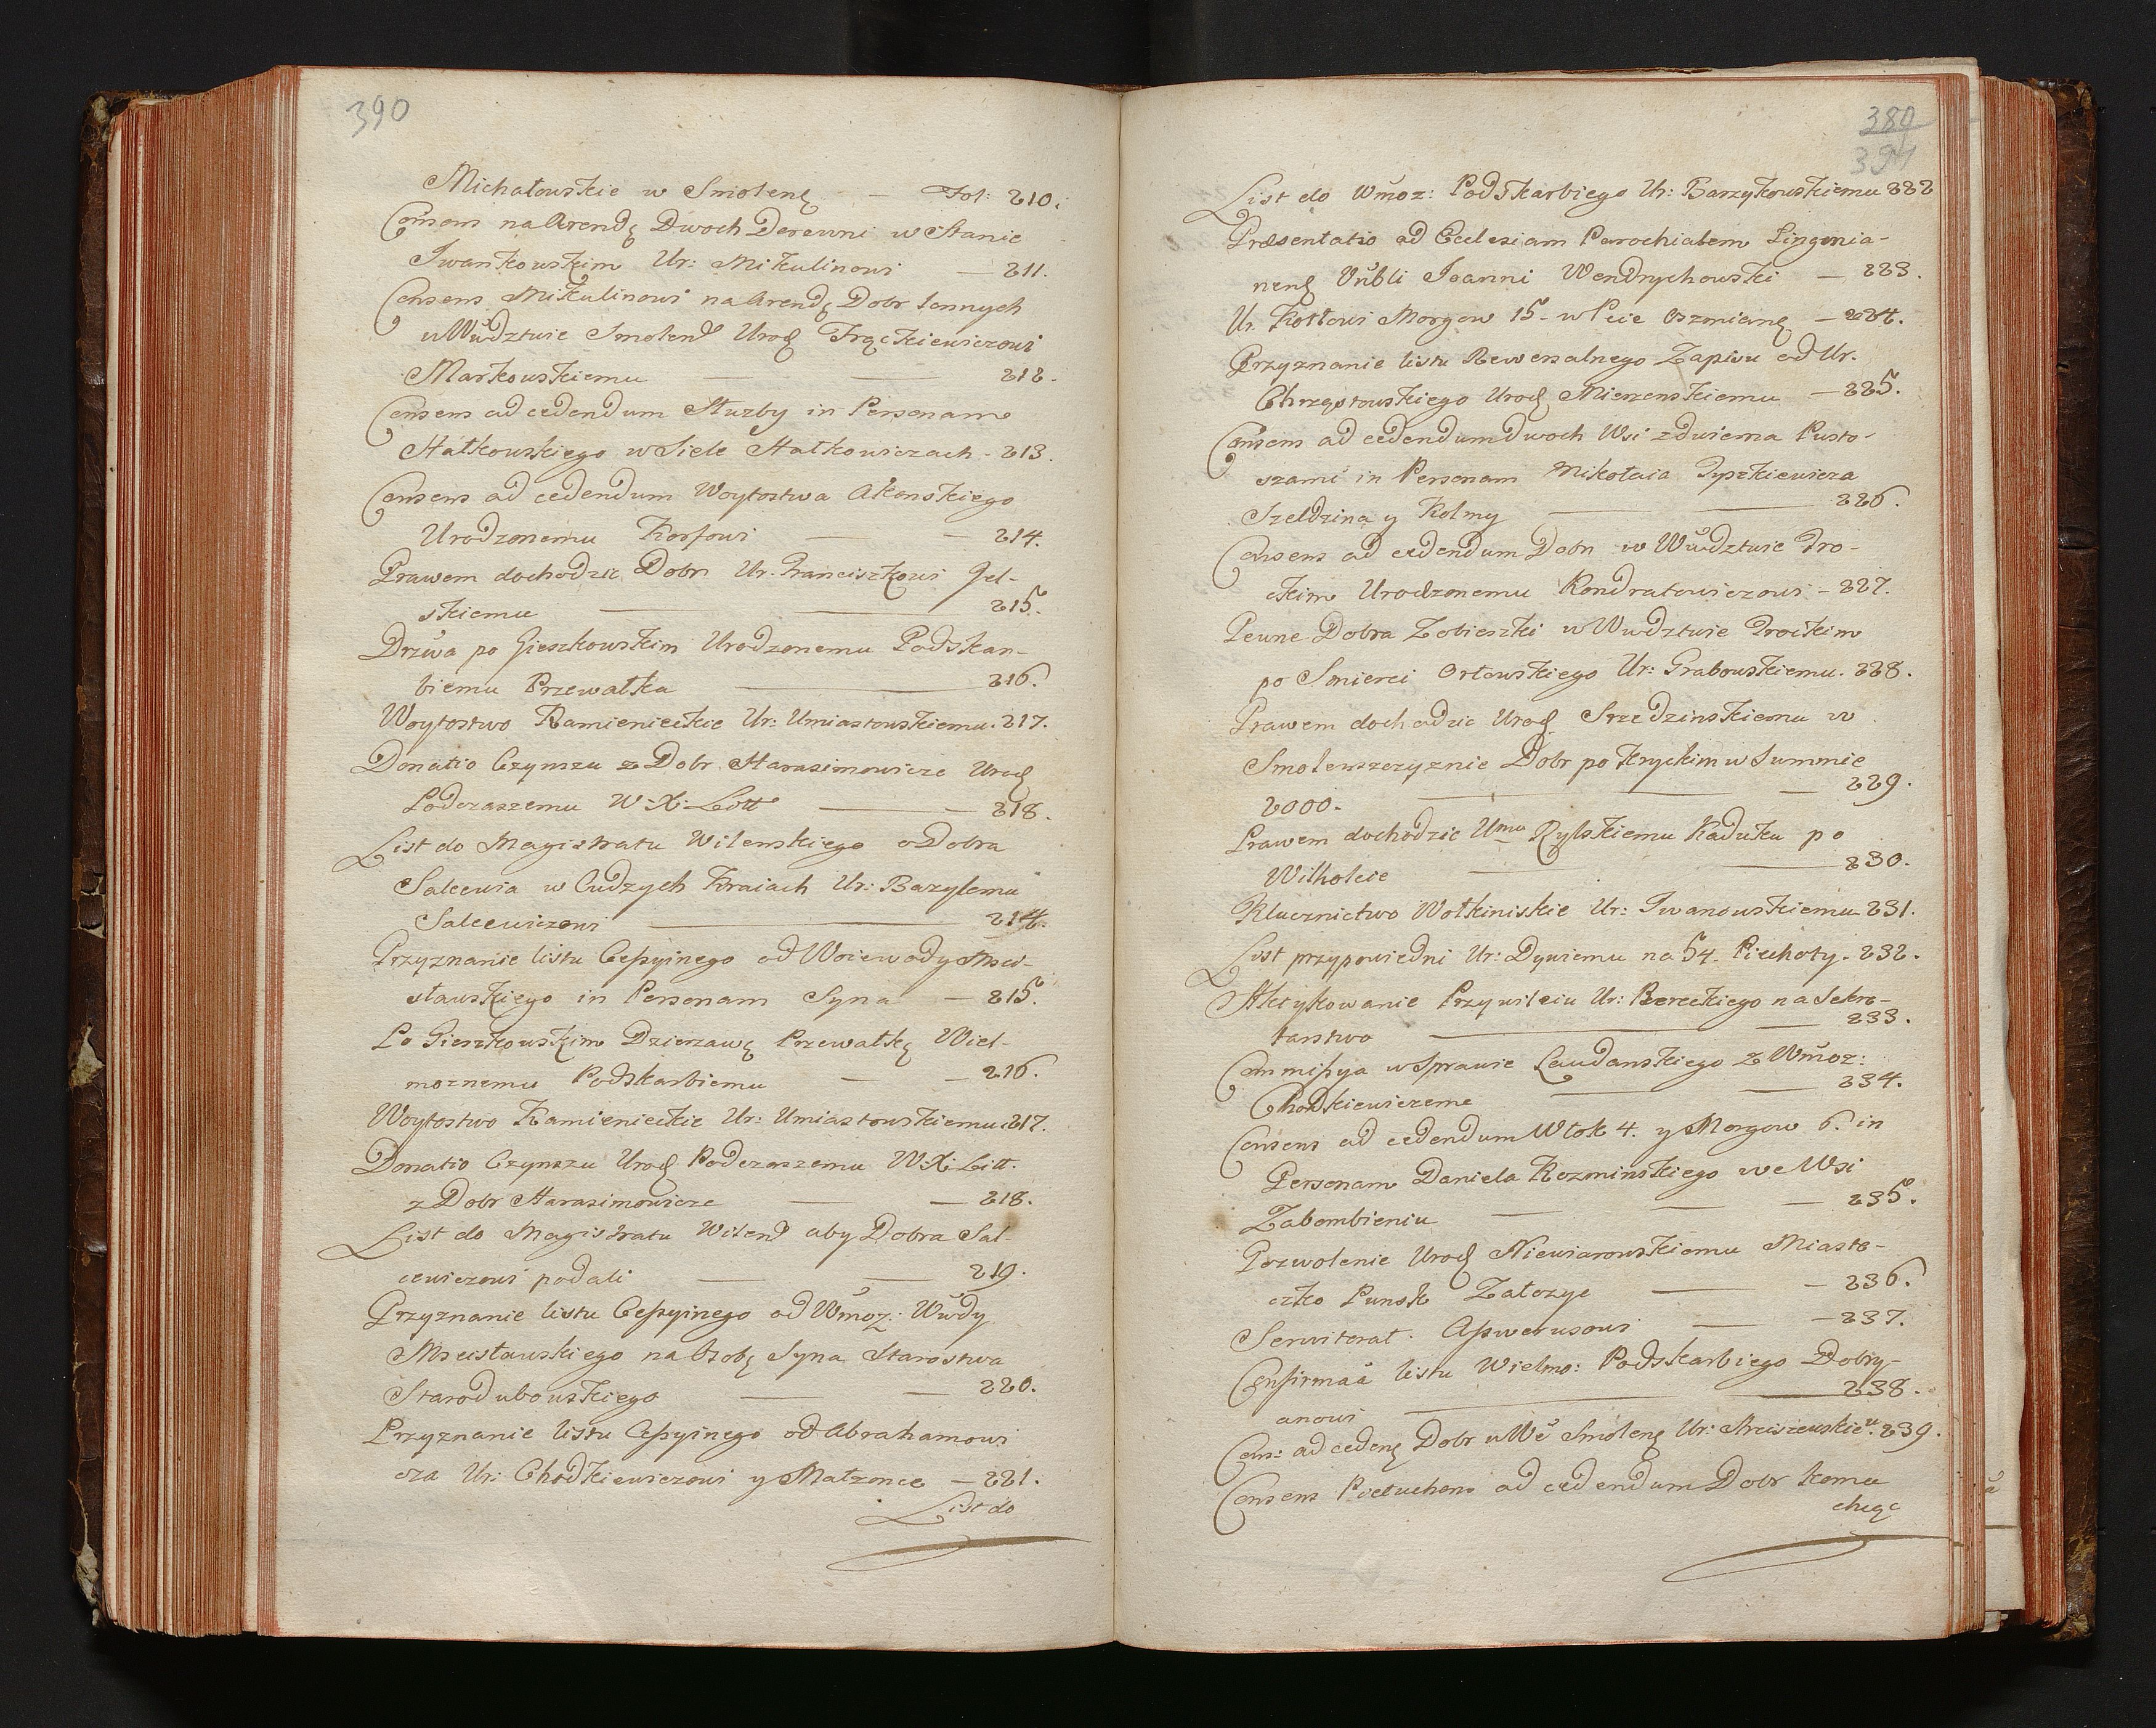 390
Michałowskie w Smolenę — Fol: 210.
Consens na Arendę Dwoch Derewni w Stanie
Iwankowskim Ur: Mikulinowi — 211.
Consens Mikulinowi na Arendę Dobr lennych
w Wudztwie Smolen Urod Frąckiewiczowi
Markowskiemu — — 212.
Consens ad cedendum Służby in Personam
Hałkowskiego w Siele Hałkowiczach - 213.
Consens ad cedendum Woytostwa Akenskiego
Urodzonemu Korfowi — — 214.
Prawem dochodzic Dobr Ur. Franciszkowi Jel-
skiemu — — 215.
Drzwa po Gieszkowskim Urodzonemu Podskar-
biemu Przewałka — 216.
Woytostwo Kamienieckie Ur: Umiastowskiemu. 217.
Donatio Czynszu z Dobr Harasimowicze Urod
Podczaszemu W: X: Litt — — 218.
List do Magistratu Wilenskiego o Dobra
Salcewia w Cudzych Kraiach Ur: Bazylemu
Salcewiczowi — 214.
Przyznanie listu Cessyinego od Woiewody Msci-
sławskiego in Personam Syna — 215.
Po Gieszkowskim Dzierzawę Przewałkę Wiel-
moznemu Podskarbiemu — — 216.
Woytostwo Kamienieckie Ur: Umiastowskiemu. 217.
Donatio Czynszu Urod Podczaszemu W: X: Litt.
z Dobr Harasimowicze — — 218.
List do Magistratu Wilen aby Dobra Sal-
cewiczowi podali — — 219.
Przyznanie listu Cessyinego od Wmoz: Wudy
Mscisławskiego na Osobę Syna Starostwa
Starodubowskiego — — 220.
Przyznanie listu Cessyinego od Abrahamowi
cza Ur: Chodkiewiczowi y Małzonce — 221.
List do
380
391
List do Wmoz: Podskarbiego Ur: Barzykowskiemu 222
Præsentatio ad Ecclesiam Parochialem Lingmia-
nenę Vnbli Joanni Wendrychowski — 223.
Ur. Kottowi Morgow 15- w Pcie Oszmianę — 224.
Przyznanie listu Rewersalnego Zapisu od Ur.
Chrzęstowskiego Urod Mierzenskiemu — 225.
Consens ad cedendum dwoch Wsi z dwiema Pusto-
szami in Personam Mikołaia Tyszkiewicza
Szeldzina y Kolmy — — 226.
Consens ad cedendum Dobr w Wudztwie Tro-
ckim Urodzonemu Kondratowiczowi - 227.
Pewne Dobra Zobieszki w Wudztwie Trockim
po Smierci Orłowskiego Ur: Grabowskiemu. 228.
Prawem dochodzic Urod Srzedzinskiemu w
Smolenszczyznie Dobr po Kryckim w Summie
2000. — — — 229.
Prawem dochodzic Umu Rylskiemu Kaduku po
Wilholcie — — 230.
Klucznictwo Wołkiniskie Ur: Iwanowskiemu - 231.
List przypowiedni Ur: Dywiemu na 54. Piechoty. 232.
Aktykowanie Przywileiu Ur: Bereckiego na Sekre-
tarstwo — — 233.
Commissya w Sprawie Laudanskiego z Wmoz:
Chodkiewiczeme — — 234.
Consens ad cedendum Włok 4. y Morgow 6. in
Personam Daniela Kozminskiego we Wsi
Zabombieniu — — — 235.
Pozwolenie Urod Niewiarowskiemu Miaste-
czko Punsk Załozyc — — 236.
Serwitorat. Asswerusowi — — 237.
Confirmaã listu Wielmo: Podskarbiego Dobry-
anowi — — 238.
Cons: ad cedenę Dobr w We Smolenę Ur: Strziszewskieu. 239.
Consens Pietuchom ad cedendum Dobr komu
chcąc